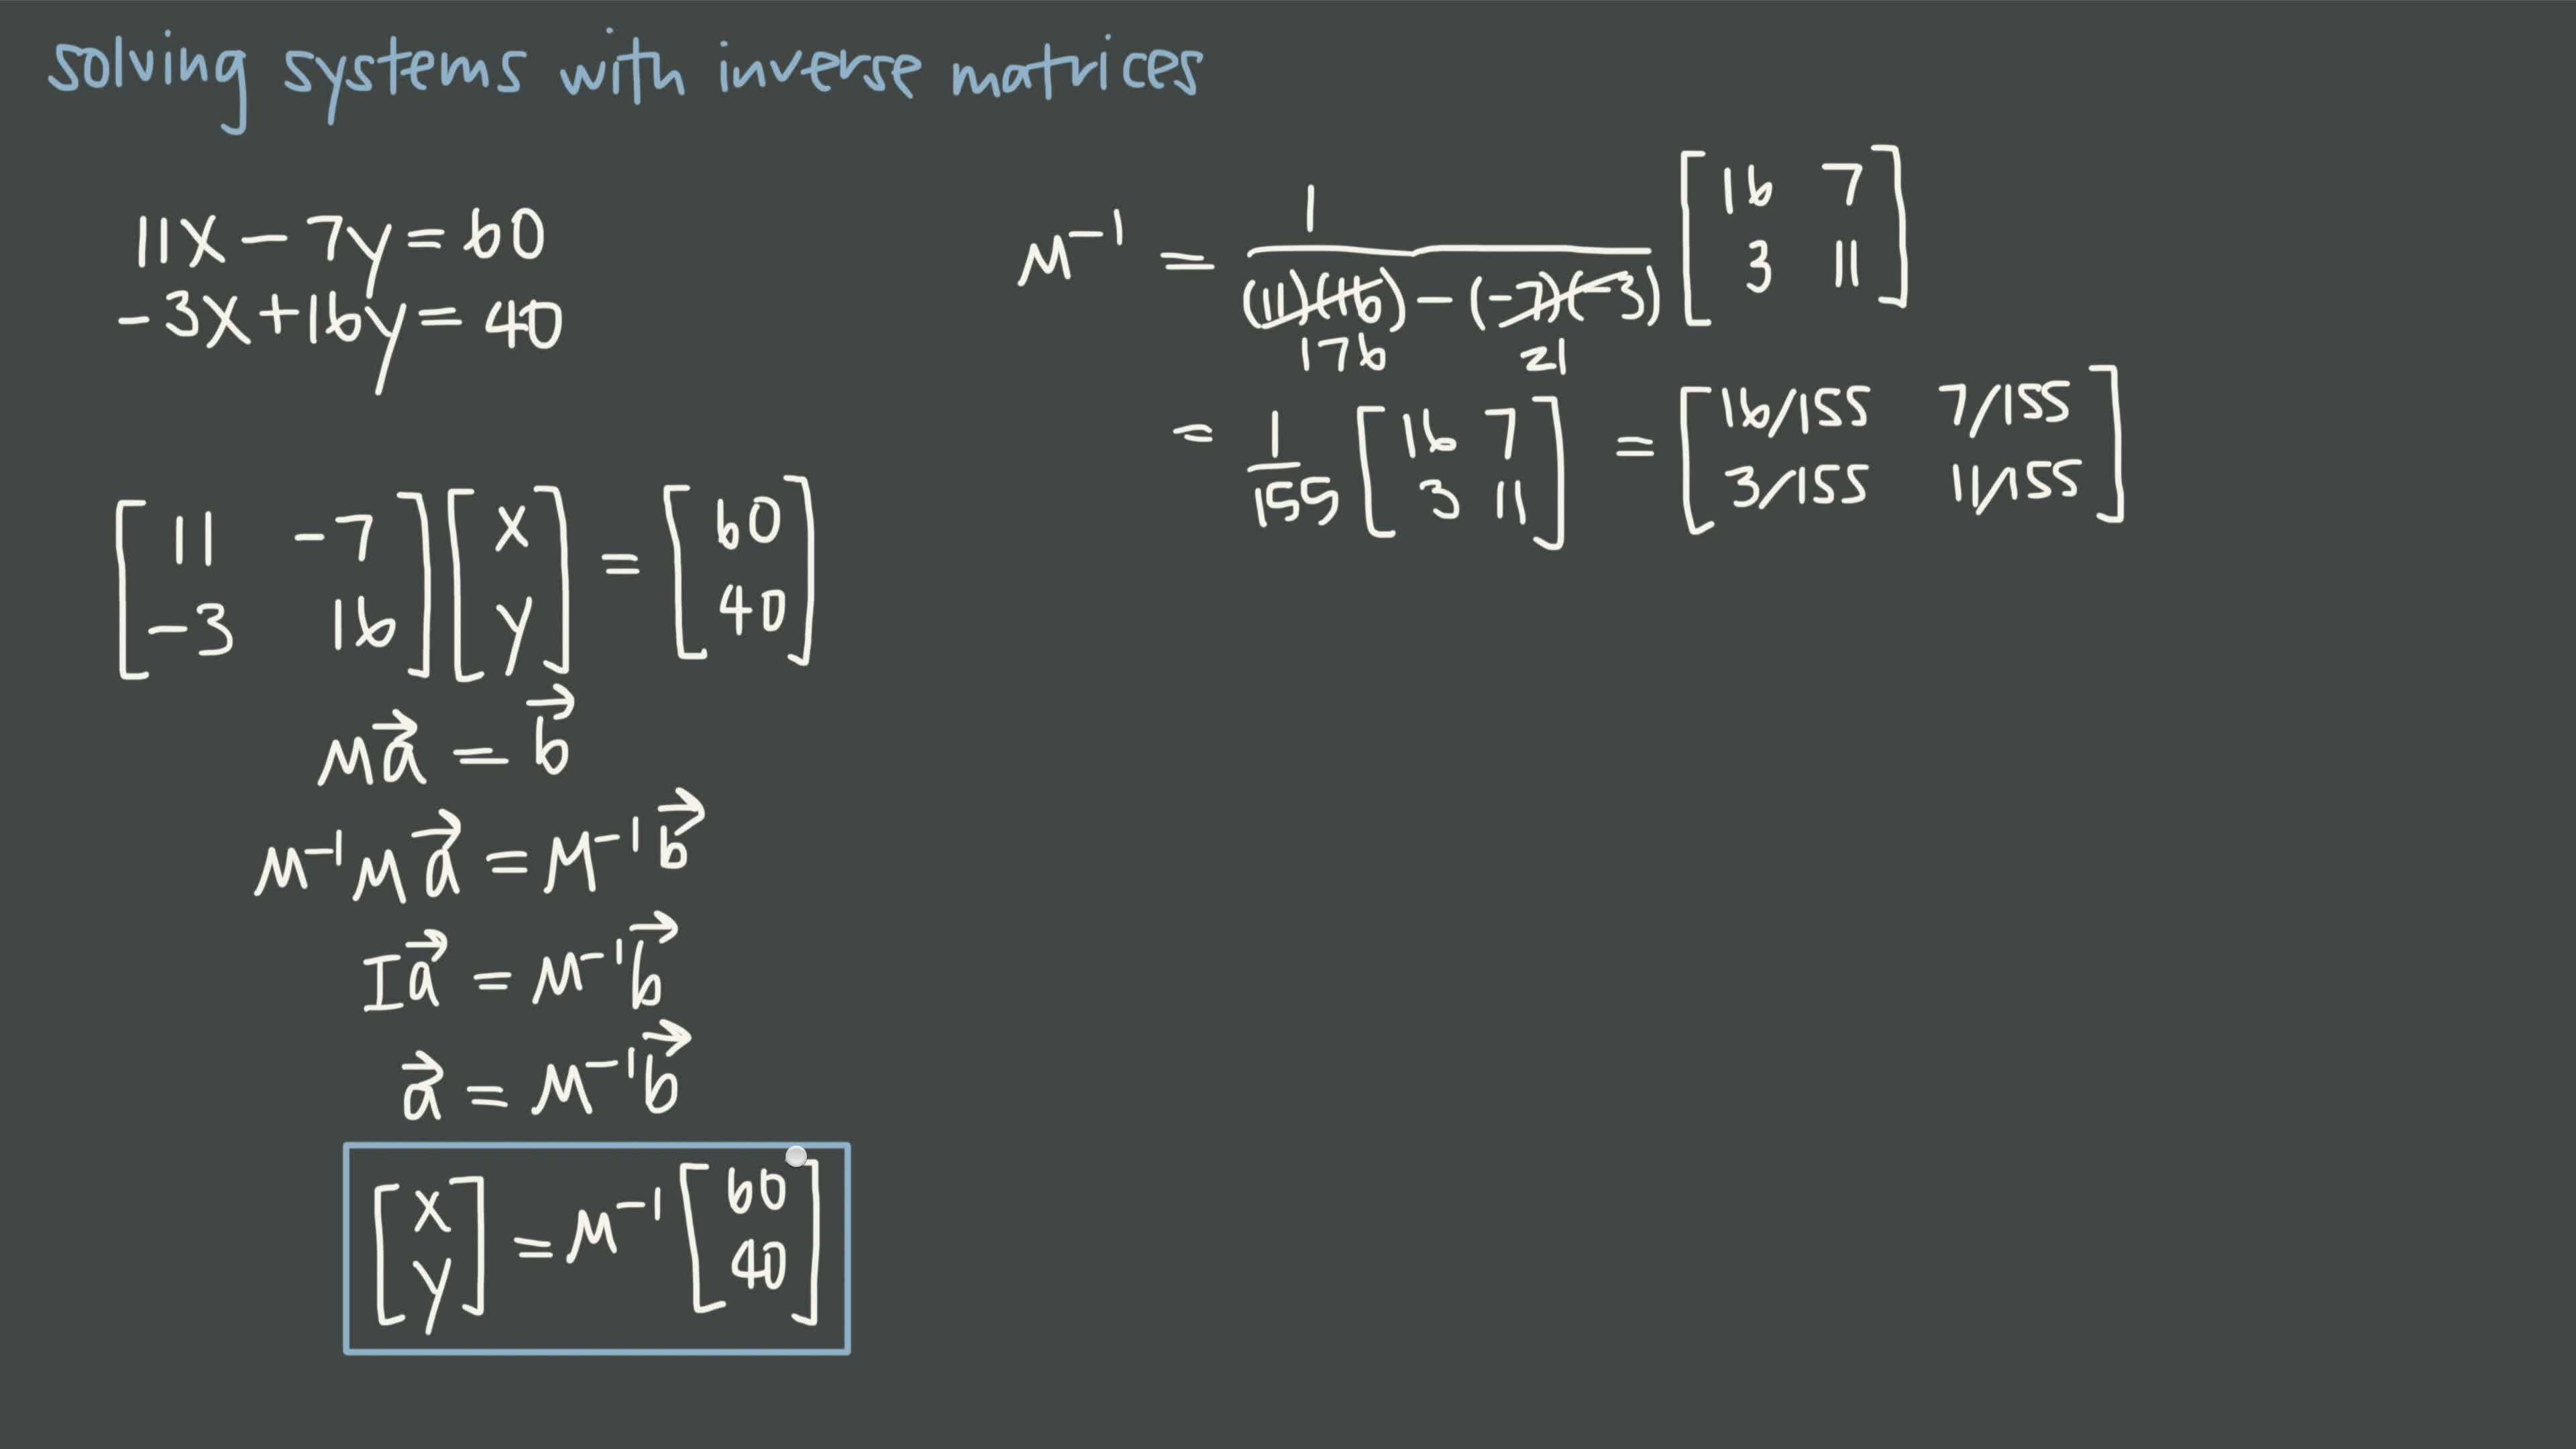 solving systems with inverse matrices
11x - 7y = 60
-3x + 16y = 40
[11 -7; -3 16] [x; y] = [60; 40]
Ma⃗ = b⃗
M⁻¹Ma⃗ = M⁻¹b⃗
Ia⃗ = M⁻¹b⃗
a⃗ = M⁻¹b⃗
[x; y] = M⁻¹ [60; 40]
M⁻¹ = 1 / ((11)(16) - (-7)(-3)) [16 7; 3 11]
176 21
= 1/155 [16 7; 3 11] = [16/155 7/155; 3/155 11/155]